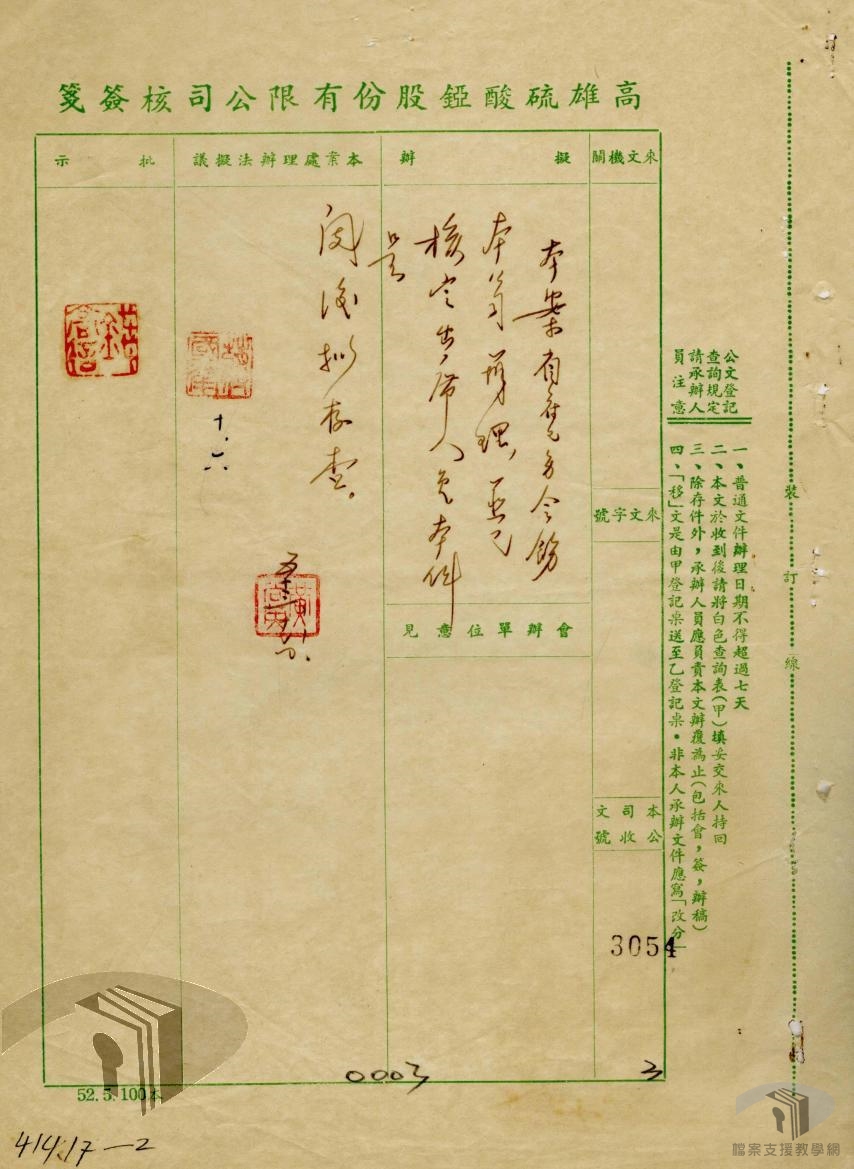 高雄硫酸錏股份有限公司核簽箋
來文機關
擬辦
本案處理辦法擬議
批示
來文字號
會辦單位意見
本公司收文號
3054
本案
本
核定出席人
閱後擬存查。
十、六
公文登記
查詢規定
請承辦人
員注意
一、普通文件辦理日期不得超過七天
二、本文於收到後請將白色查詢表(甲)填妥交來人持回
三、除存件外，承辦人員應員責本文辦覆為止(包括會，簽，辦稿)
四、「移」文是由甲登記桌送至乙登記桌．非本人承辦文件應寫「改分」
裝
訂
線
0003
3
52.5.100本
414.17—2
檔案支援教學網